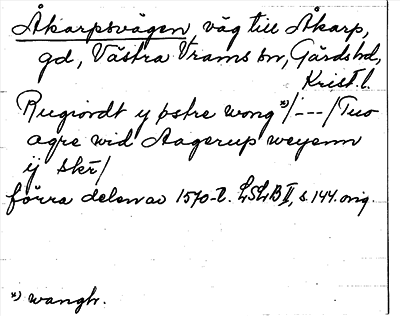 Åkarpsvägen, väg till Åkarp,
gd, Västra Vrams sn, Gärds hd,
Krist. l.
Rugiordt y østre wong *)/---/Tuo
agre wid Aagerup weyenn
ij skr/
förra delen av 1570-t. LSLB II, s. 144. orig.
*) wangh.